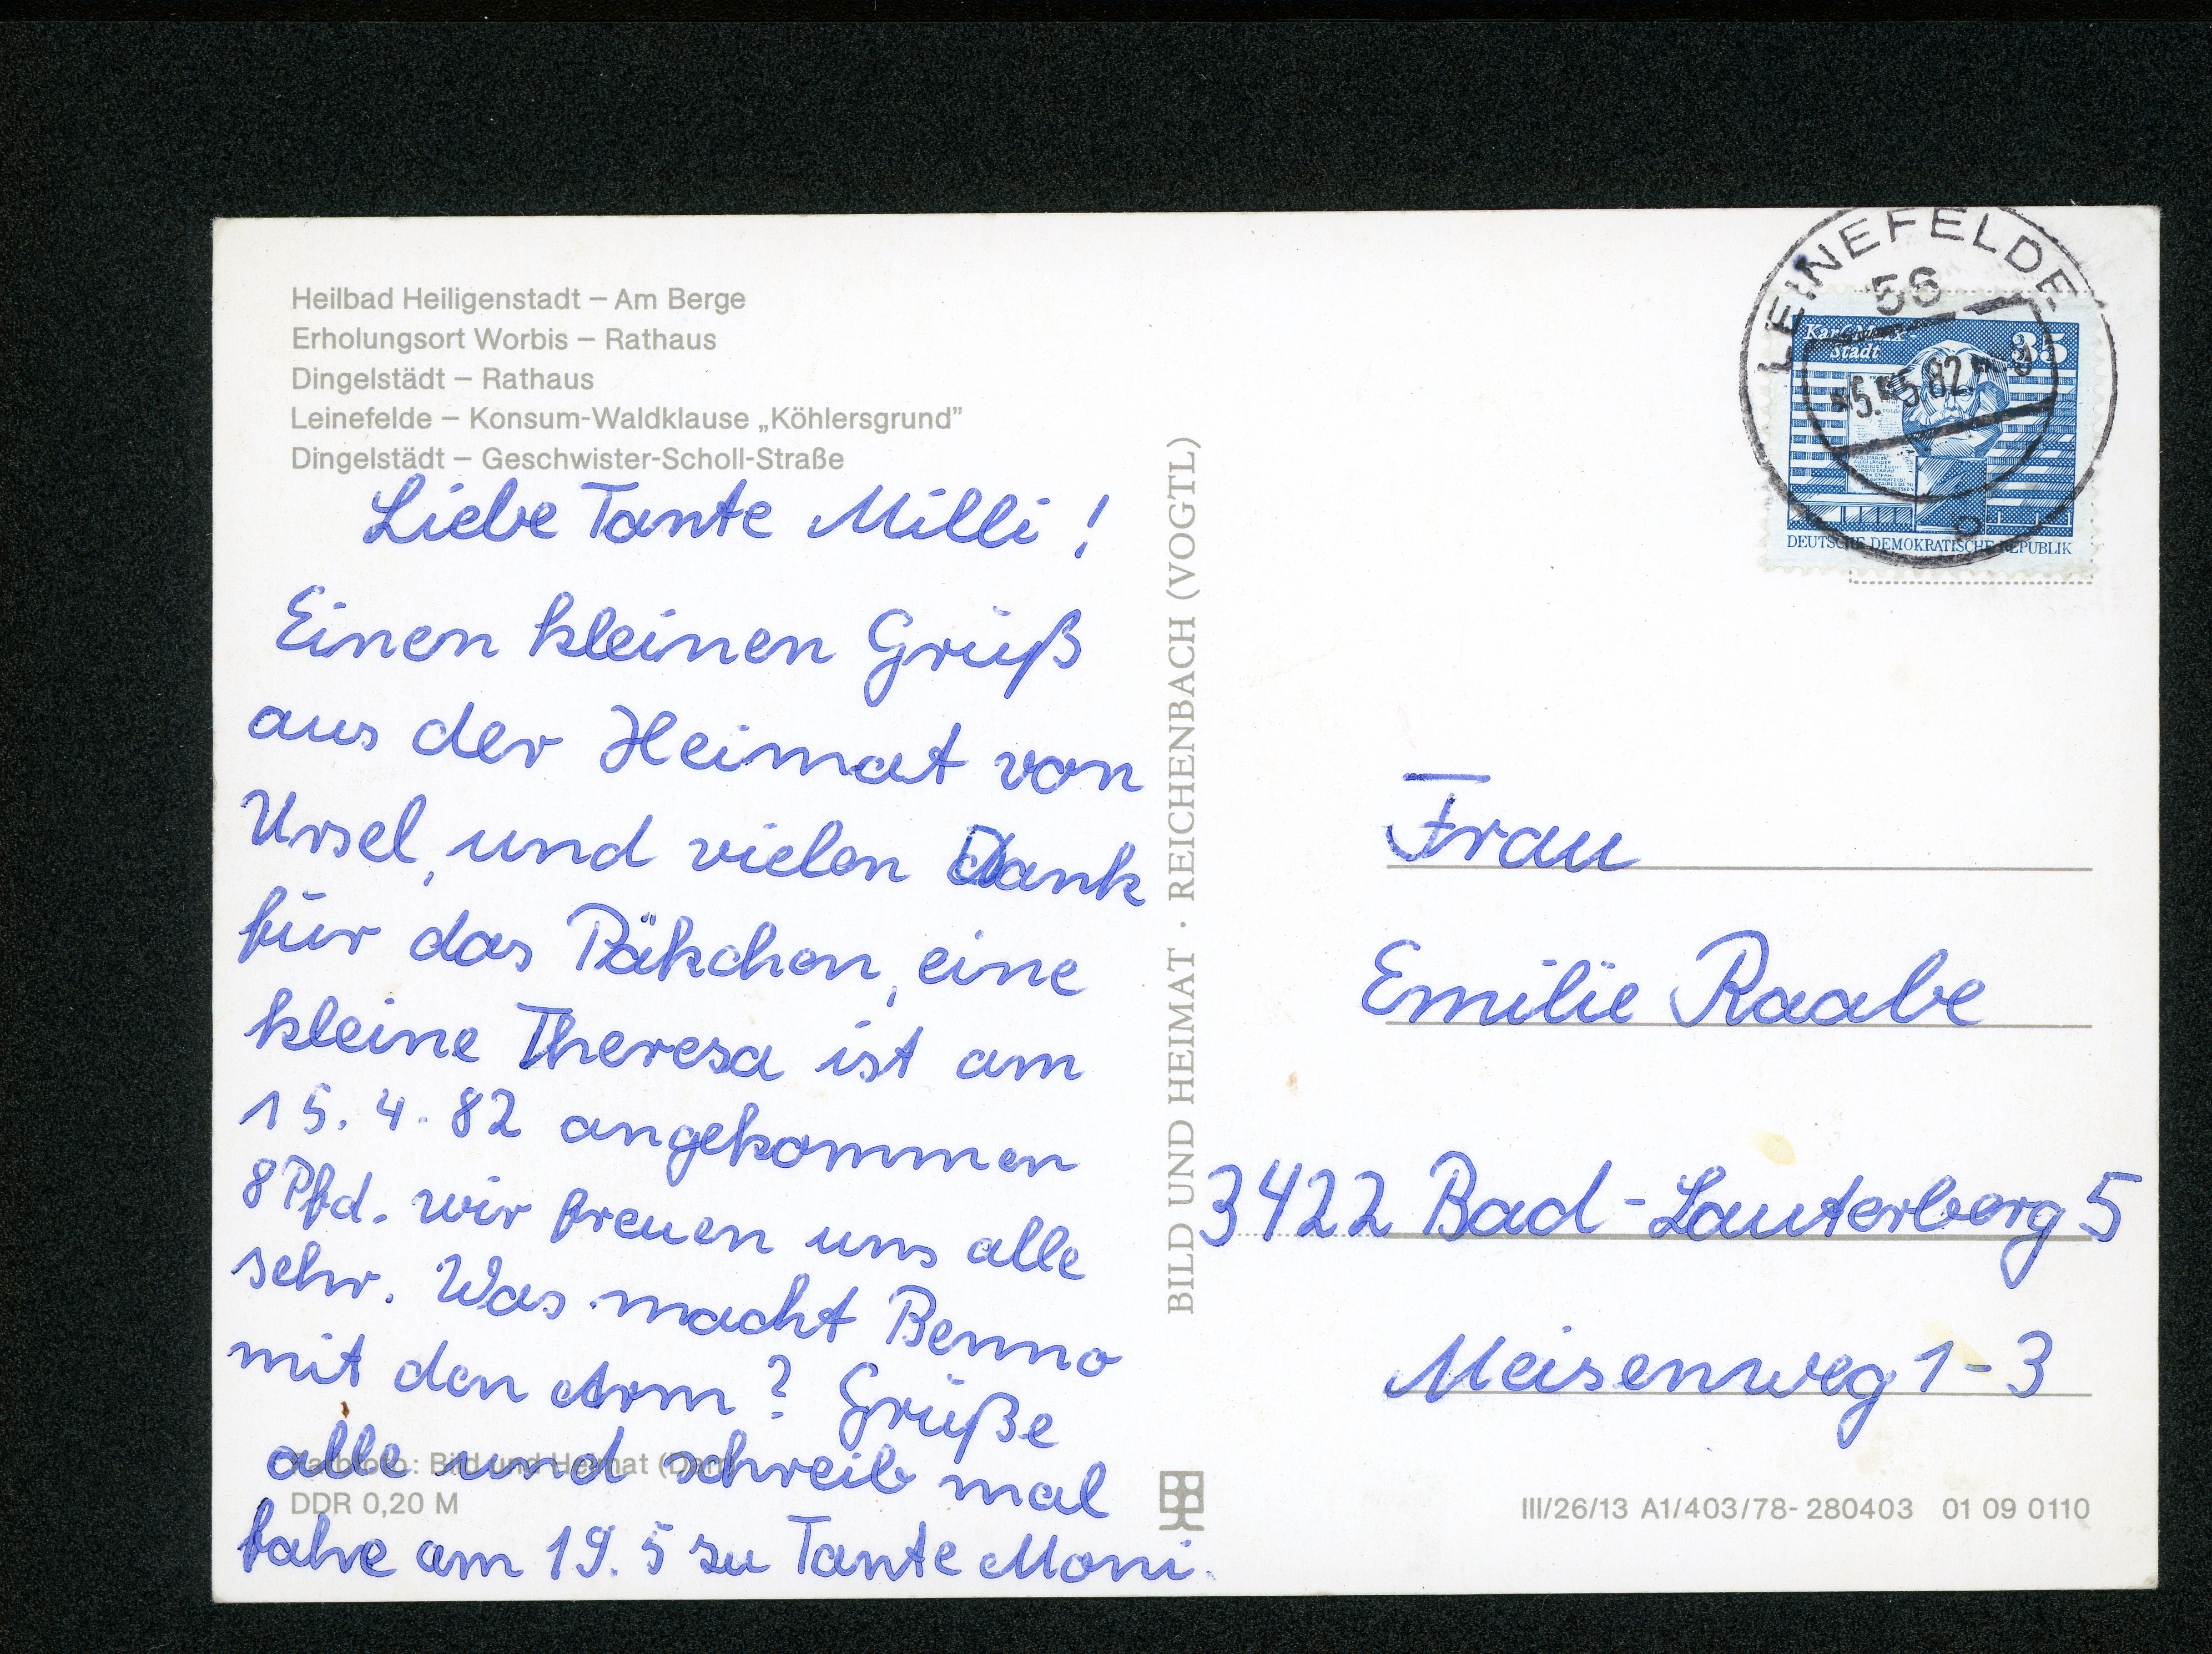 Heilbad Heiligenstadt – Am Berge
Erholungsort Worbis – Rathaus
Dingelstädt – Rathaus
Leinefelde – Konsum-Waldklause „Köhlersgrund”
Dingelstädt – Geschwister-Scholl-Straße
Liebe Tante Milli!
Einen kleinen Gruß
aus der Heimat von
Ursel, und vielen Dank
für das Päkchen, eine
kleine Theresa ist am
15. 4. 82 angekommen
8 Pfd. wir freuen uns alle
sehr. Was macht Benno
mit den Arm? Grüße
alle und schreib mal
fahre am 19. 5 zu Tante Moni.
Farbfoto: Bild und Heimat (Darr)
DDR 0,20 M
BILD UND HEIMAT · REICHENBACH (VOGTL)
LEINEFELDE
56
5.82
Stadt
35
DEUTSCHE DEMOKRATISCHE REPUBLIK
Frau
Emilie Raabe
3422 Bad-Lauterberg 5
Meisenweg 1-3
III/26/13 A1/403/78-280403 01 09 0110